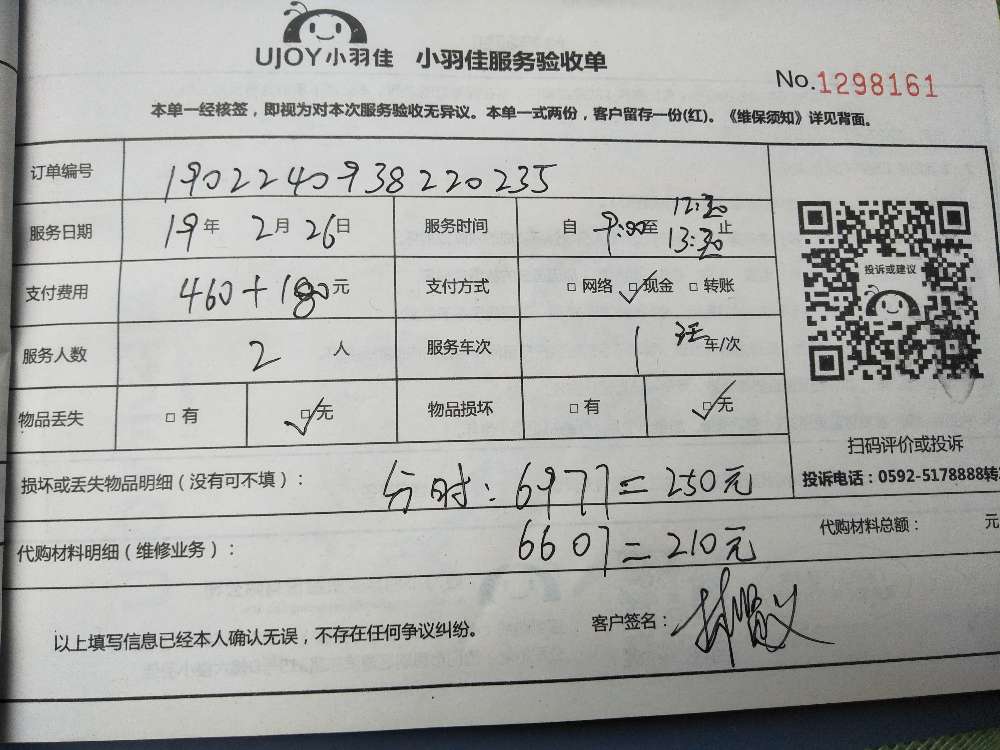 UJOY小羽佳 小羽佳服务验收单
No.1298161
本单一经核签，即视为对本次服务验收无异议。本单一式两份，客户留存一份(红)。《维保须知》详见背面。
订单编号 190224093822 0235
服务日期 19年 2月 26日 服务时间 自 9:00至 12:30 13:30 止
支付费用 460+180元 支付方式 □网络 ☑现金 □转账
服务人数 2 人 服务车次 1 车/次
物品丢失 □有 ☑无 物品损坏 □有 ☑无
投诉或建议
扫码评价或投诉
投诉电话：0592-5178888转
损坏或丢失物品明细（没有可不填）： 分时：6977=250元
代购材料明细（维修业务）： 6607=210元 代购材料总额： 元
以上填写信息已经本人确认无误，不存在任何争议纠纷。 客户签名：